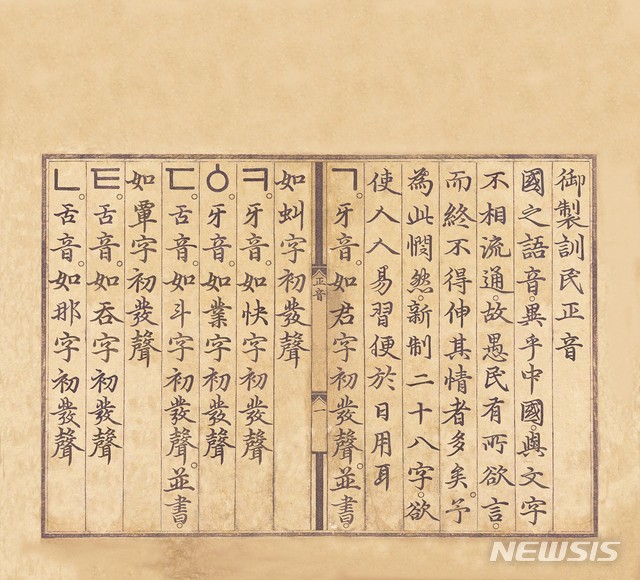 御製訓民正音
國之語音。異乎中國。與文字
不相流通。故愚民有所欲言。
而終不得伸其情者多矣。予
為此憫然。新制二十八字。欲
使人人易習便於日用耳
ㄱ。牙音。如君字初發聲。並書。
正音
一
如虯字初發聲
ㅋ。牙音。如快字初發聲
ㆁ。牙音。如業字初發聲
ㄷ。舌音。如斗字初發聲。並書。
如覃字初發聲
ㅌ。舌音。如呑字初發聲
ㄴ。舌音。如那字初發聲
NEWSIS